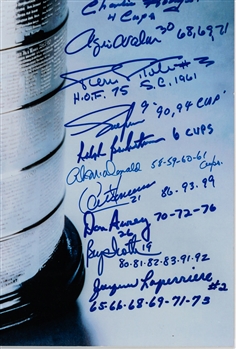 Charlie
4 Cups
30 68,69,71
Pierre Pilote #3
H.O.F. 75 S.C. 1961
9 "90,94 CUP"
Ralph Backstrom 6 CUPS
Ab McDonald 58-59-60-61
Cups.
21 86.93.99
Don Awrey 70-72-76
26
Butch Goring 19
80-81-82-83-91-92
Jacques Laperriere
#2
65-66-68-69-71-73